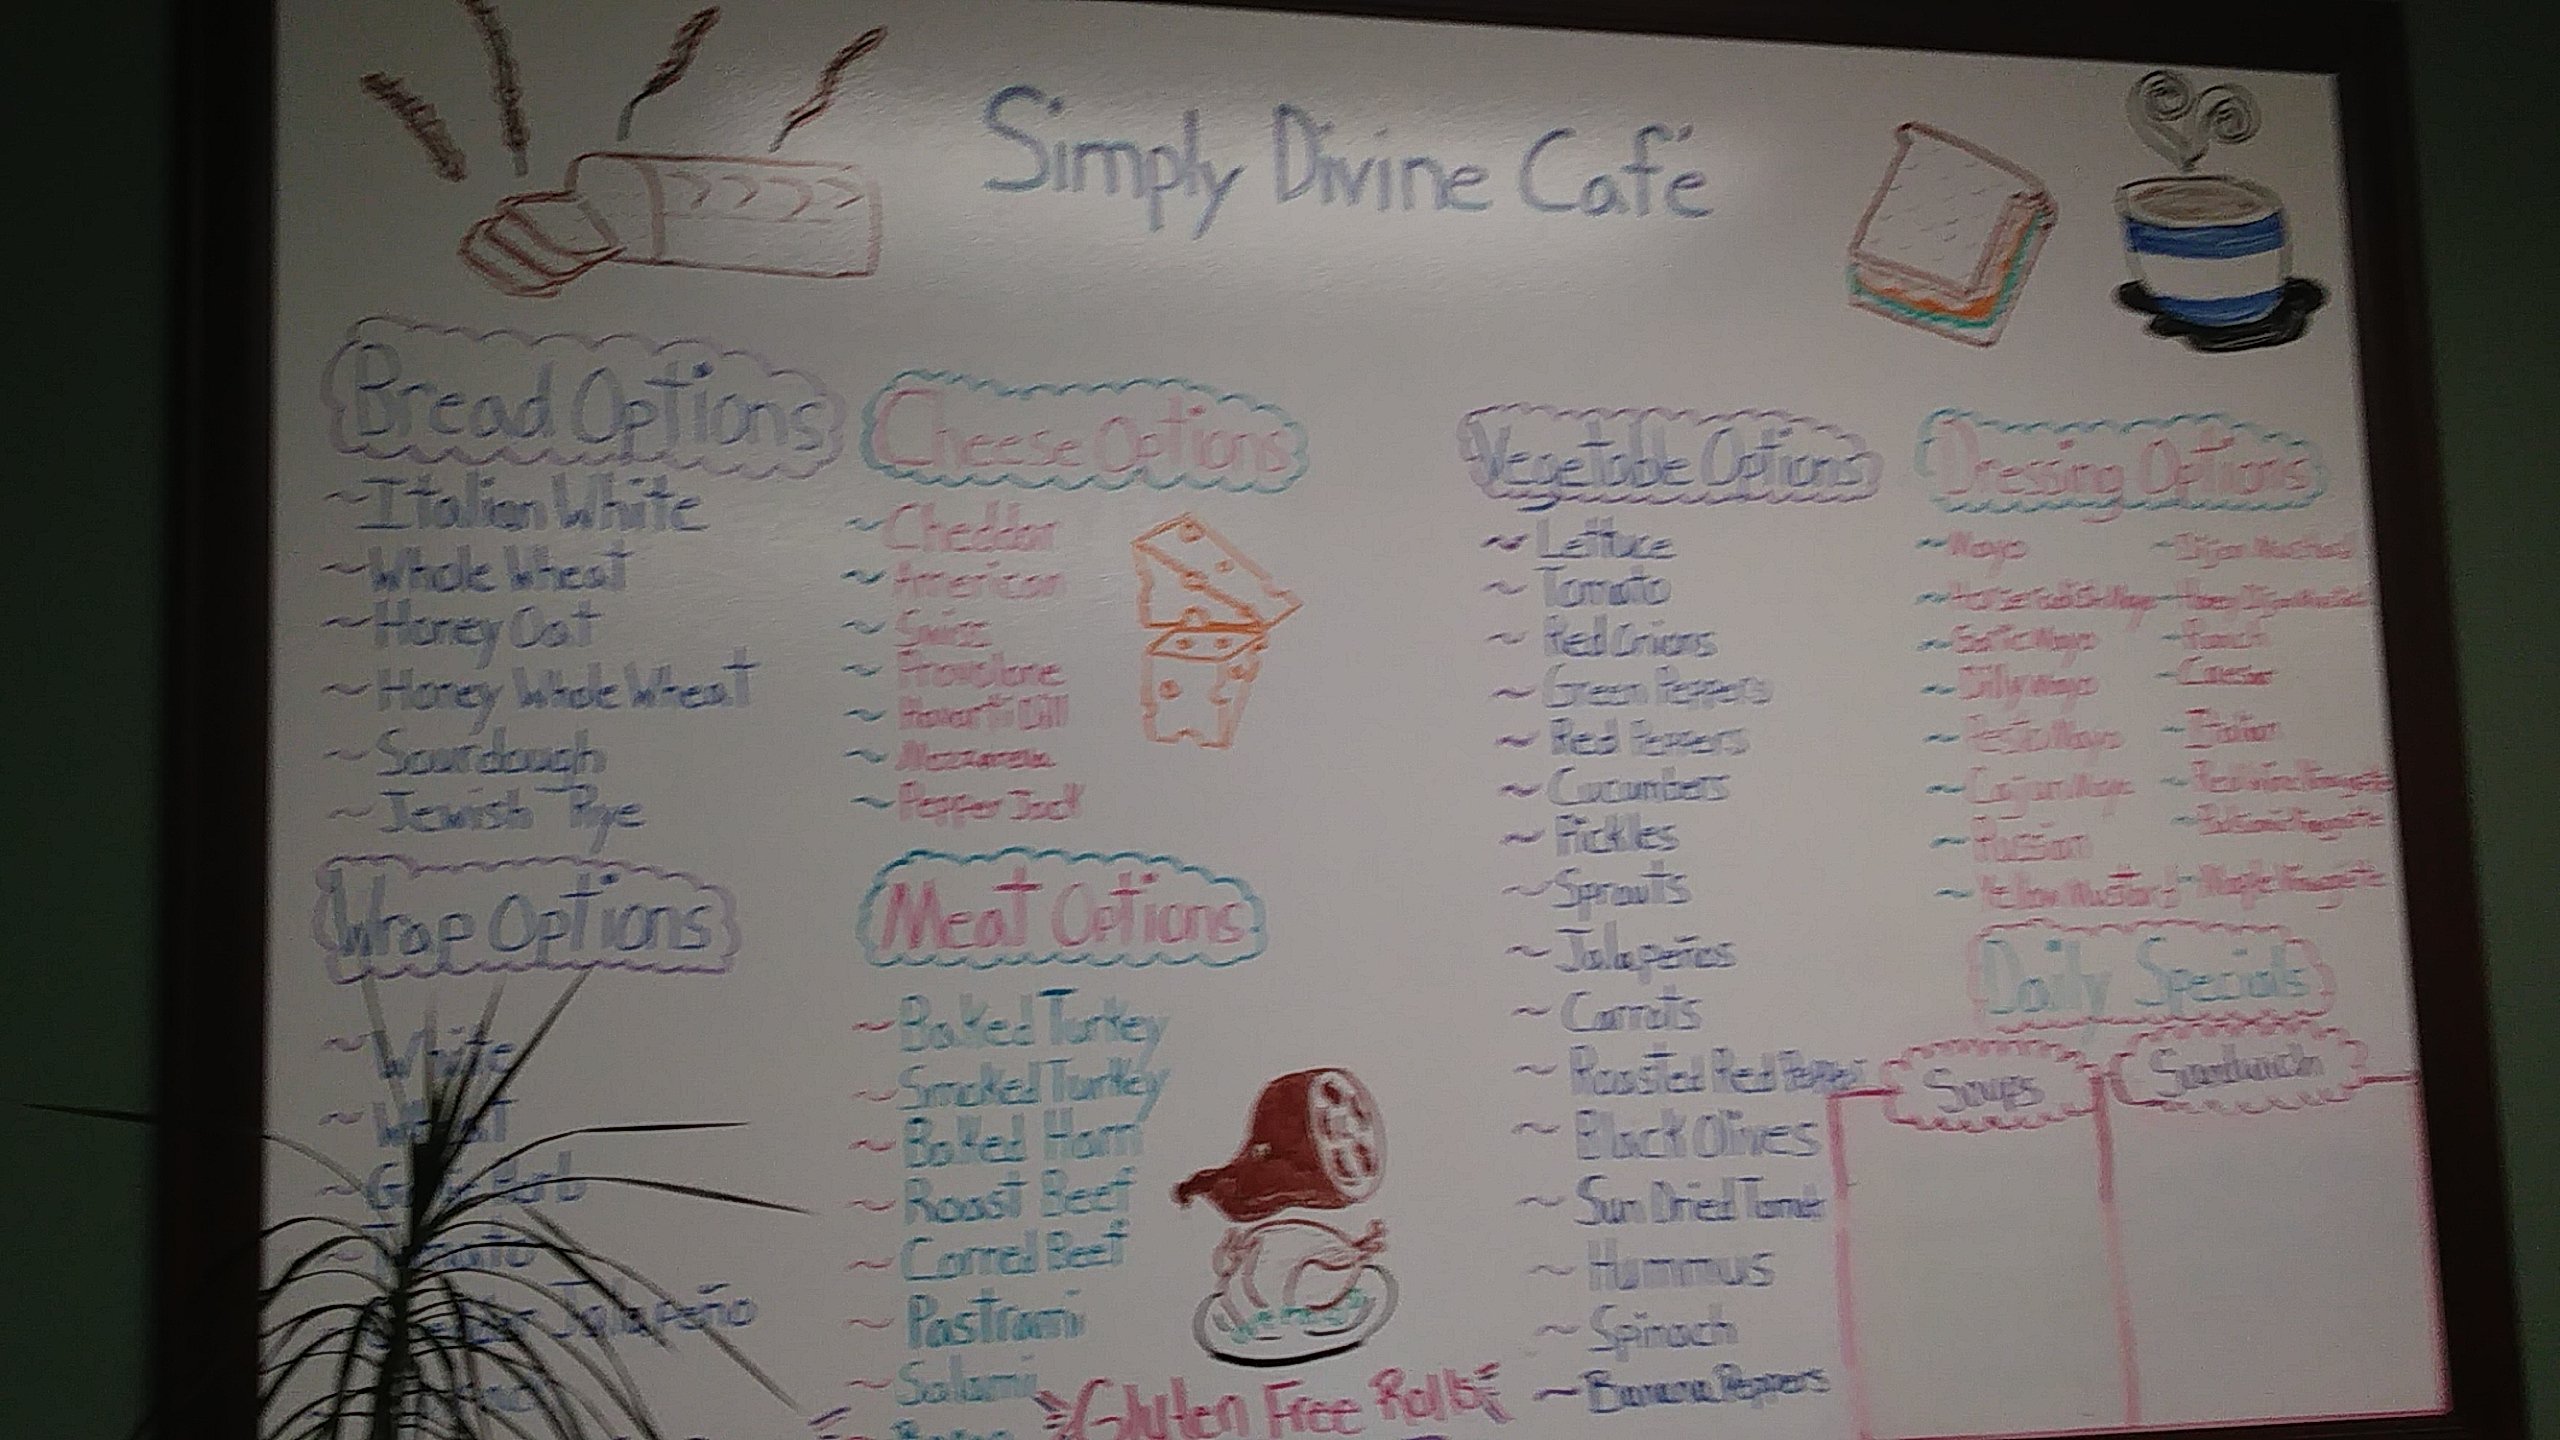 Simply Divine Café
Bread Options
~Italian White
~Whole Wheat
~Honey Oat
~Honey Whole Wheat
~Sourdough
~Jewish Rye
Wrap Options
~White
~Wheat
~Herb
Jalapeño
Cheese Options
~Cheddar
~American
~Swiss
~Provolone
~Havarti Dill
~Mozzarella
~Pepper Jack
Meat Options
~Baked Turkey
~Smoked Turkey
~Baked Ham
~Roast Beef
~Corned Beef
~Pastrami
~Salami
Gluten Free Rolls
Vegetable Options
~Lettuce
~Tomato
~Red Onions
~Green Peppers
~Red Peppers
~Cucumbers
~Pickles
~Sprouts
~Jalapeños
~Carrots
~Roasted Red Pepper
~Black Olives
~Sun Dried Tomat
~Hummus
~Spinach
~Banana Peppers
Dressing Options
~Mayo
~Horseradish Mayo
~Garlic Mayo
~Dilly Mayo
~Pesto Mayo
~Cajun Mayo
~Russian
~Yellow Mustard
~Dijon Mustard
~Honey Dijon Mustard
~Ranch
~Caesar
~Italian
~Red Wine Vinagrette
~Balsamic Vinagrette
~Maple Vinagrette
Daily Specials
Soups
Sandwich